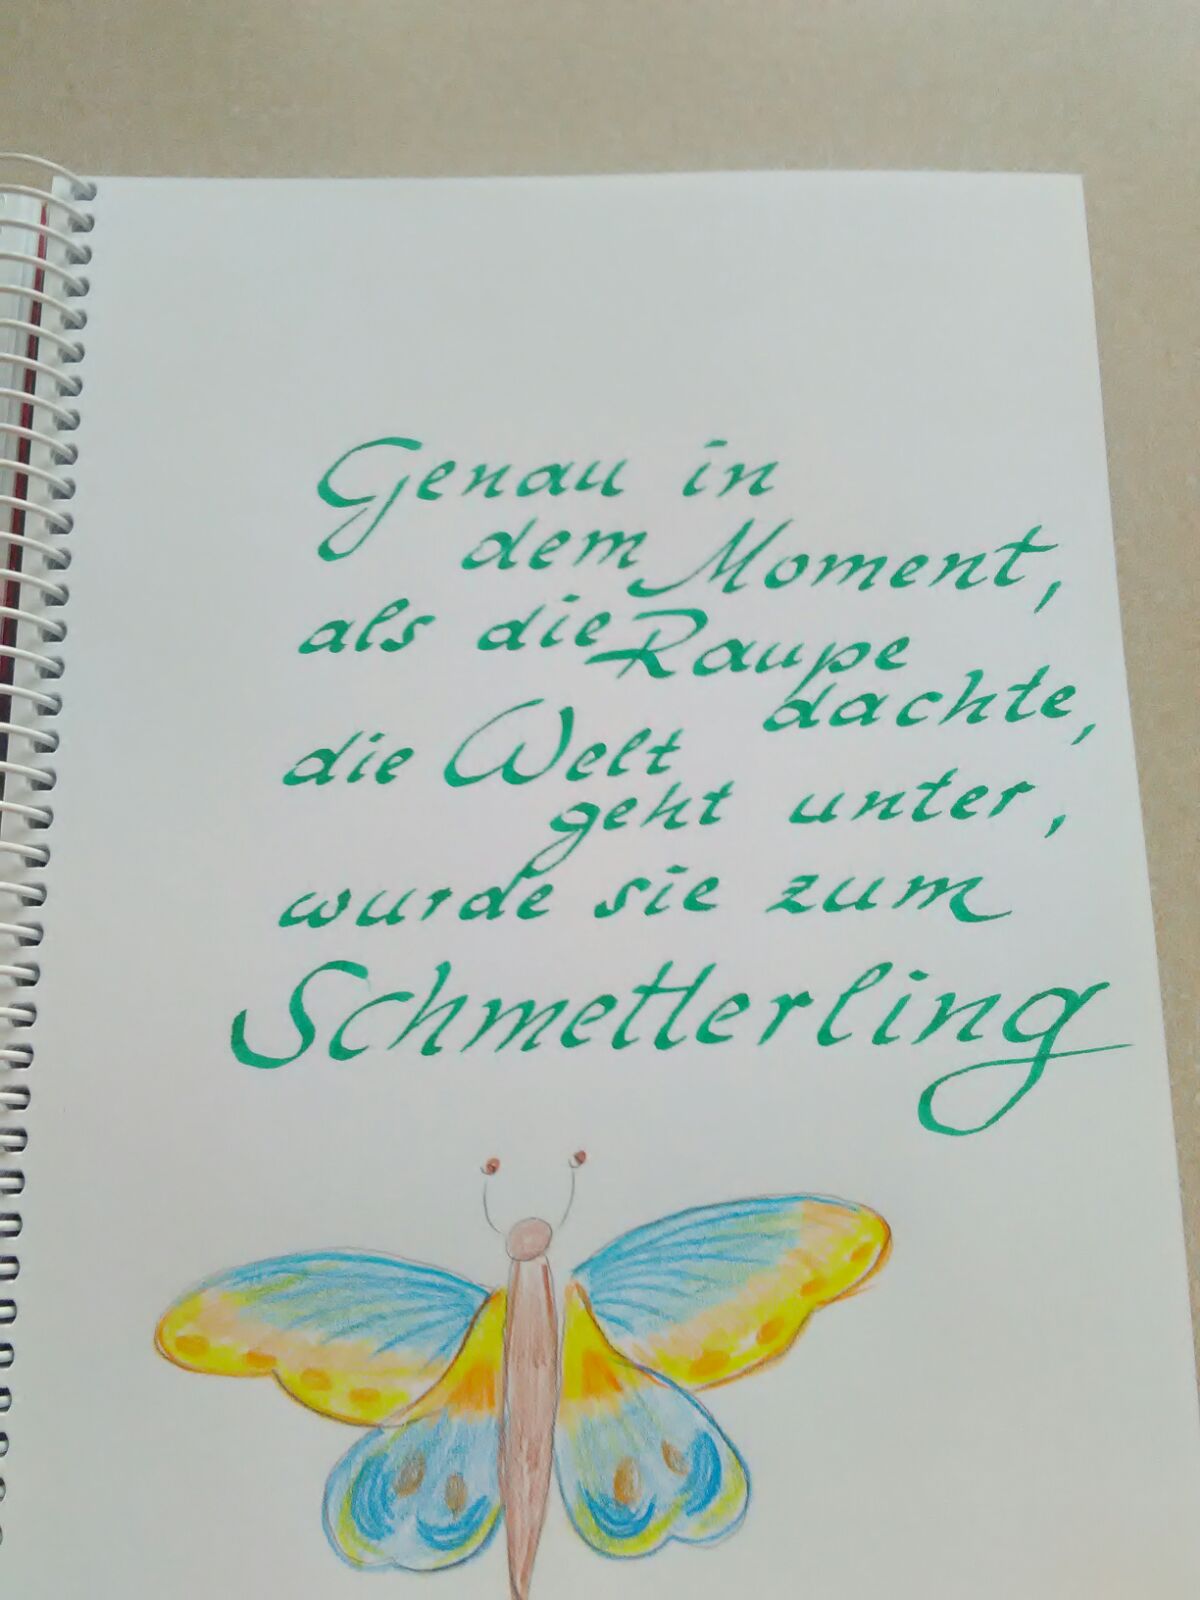 Genau in
dem Moment,
als die Raupe
dachte,
die Welt
geht unter,
wurde sie zum
Schmetterling